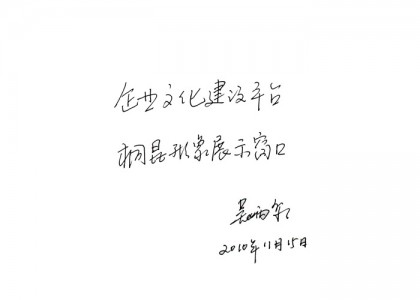 企业文化建设平台
桐昆形象展示窗口
2010年11月15日